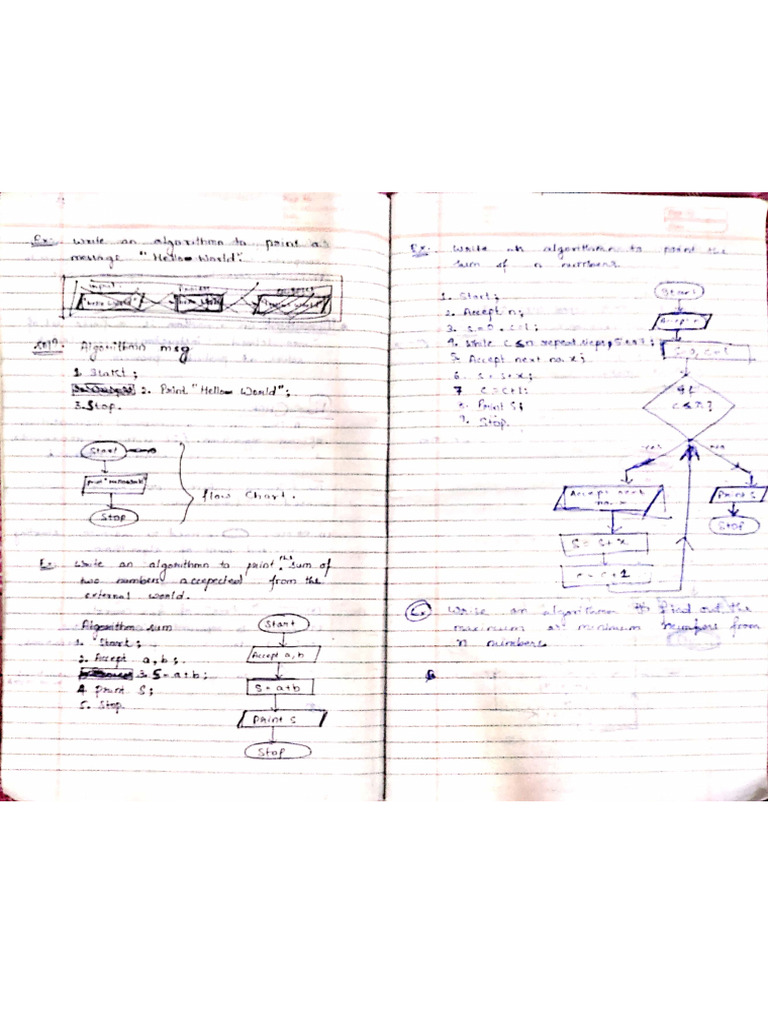 Ex:- Write an algorithm to print a
message "Hello World".
Input Process
Soln: Algorithm msg
1. Start ;
2. Print "Hello World";
3. Stop.
Start
print "Hello World"
Stop
flow Chart.
Ex:- Write an algorithm to print the sum of
two numbers accepected from the
external world.
Algorithm sum
1. Start ;
2. Accept a, b ;
3. S = a+b ;
4. print S ;
5. Stop
Start
Accept a, b
S = a+b
print S
Stop
Ex:- Write an algorithm to print the
sum of n numbers
1. Start ;
2. Accept n ;
3. S=0, c=1 ;
4. While c ≤ n repeat steps 5, 6 & 7 ;
5. Accept next no. x ;
6. S = S+x ;
7. c = c+1 ;
8. Print S ;
9. Stop.
Start
Accept n
S=0, c=1
If
c ≤ n?
yes
Accept next
no. x
Print S
Stop
S = S+x
c = c+1
Ex Write an algorithm to find out the
maximum or minimum numbers from
n numbers.